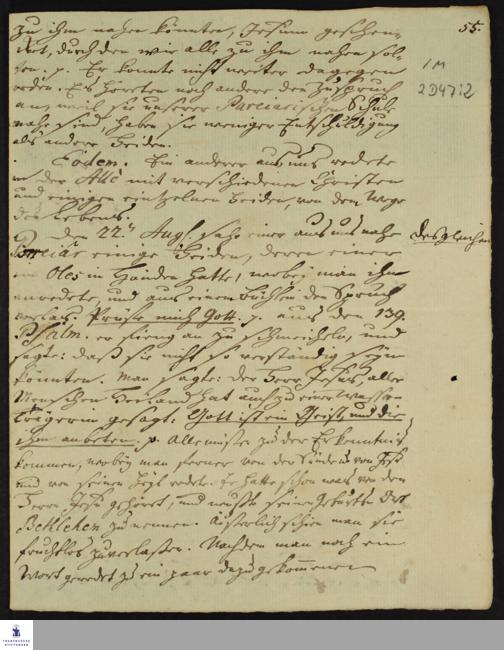 55.
zu ihm nahen könnten, Jesum geschen-
ket, durch den wir alle zu ihm nahen sol-
ten. p. Er konte nicht weiter dagegen
reden. Es hörten noch andere den Zuspruch
an, weil sie unserer Pareiarischen Schule
nahe sind, haben sie weniger Entschuldigung
als andere Heiden.
1 M
2D47:2
Eodem. Ein anderer aus uns redete
in der Allé mit verschiedenen Christen
und einigen einzelnen Heiden, von dem Wege
des Lebens.
Den 22.ten Aug. sahe einer aus uns nahe
desgleichen
Poreiar einige Heiden, deren einer
ein Oles in Händen hatte, wobei man ihn
anredete, und aus einem Büchlein den Spruch
vorlas: Prüfe mich Gott. p. aus dem 139.
Psalm. er fieng an zu schmeicheln, und
sagte: daß sie nicht so verständig seyn
könnten. Man sagte: der Herr Jesus, aller
Menschen Heiland hat auch zu einer Wasser-
trägerin gesagt: Gott ist ein Geist, und die
ihn anbeten. p. Alle müste zu der Erkenntniß
kommen, wobey man ferner von der Sünde
und von seinem redete. Er hatte schon was von dem
Herrn Jesu gehöret, und wuste seine Geburts Ort
Bethlehem zu nennen. Äusserlich schien man sie
fruchtlos zu verlassen. Nachdem man noch ein
Wort geredet zu ein paar dazugekommenen
FRANCKESCHE
STIFTUNGEN